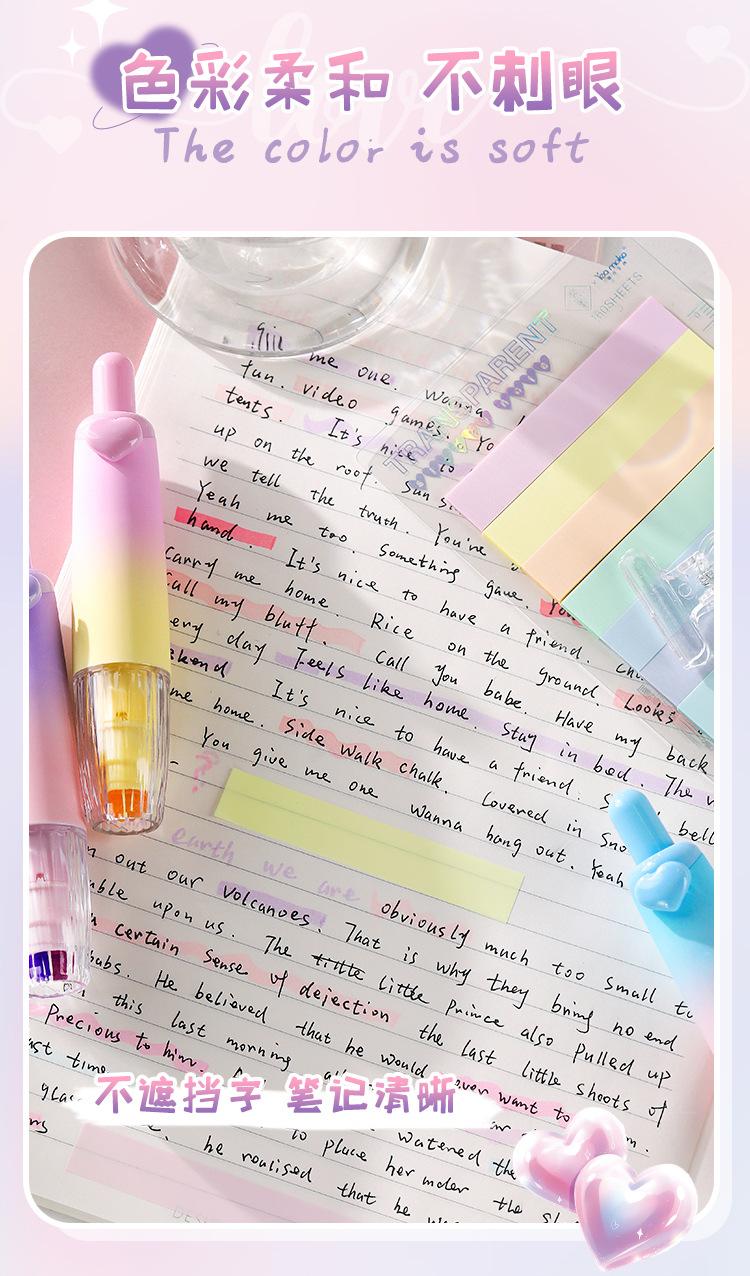 色彩柔和 不刺眼
The color is soft
me one. Wanna
fun. video games. Yo
tents. It's nice to
up on the roof. Sun s
we tell the truth. You're
Yeah me too. Something gave. You
hand. It's nice to have a friend.
Carry me home. Rice on the ground. Looks
Call my bluff. Call you babe. Have my back
ery day Feels like home. Stay in bed. The
ekend It's nice to have a friend.
me home. Side walk chalk. Covered in Sno
You give me one wanna hang out. Yeah
?
earth we are obviously much too small to
out our volcanoes. That is why they bring no end
uble upon us. The little little prince also pulled up
certain sense of dejection the last little shoots of
babs. He believed that he would ever want to
this last morning
Precious to him.
last time
watered the
to place her under the
he realised that he
TRANSPARENT
160SHEETS
不遮挡字 笔记清晰